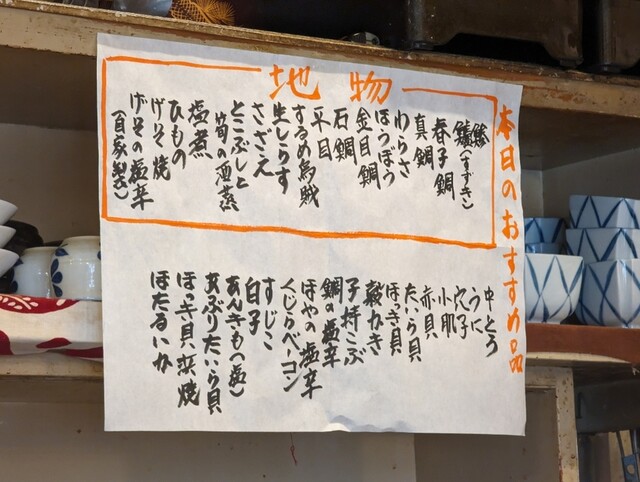 本日のおすすめ品
地物
鱸(すずき)
春子鯛
真鯛
わらさ
ほうぼう
金目鯛
石鯛
平目
するめ烏賊
生しらす
さざえ
とこぶしと
筍の酒蒸
塩煮
ひもの
げそ焼
げその塩辛
(自家製)
中とろ
うに
穴子
小肌
赤貝
たいら貝
ほっき貝
殻かき
子持こぶ
鯛の塩辛
ほやの塩辛
くじらベーコン
すじこ
白子
あんきも(塩)
あぶりたいら貝
ほっき貝浜焼
ほたるいか